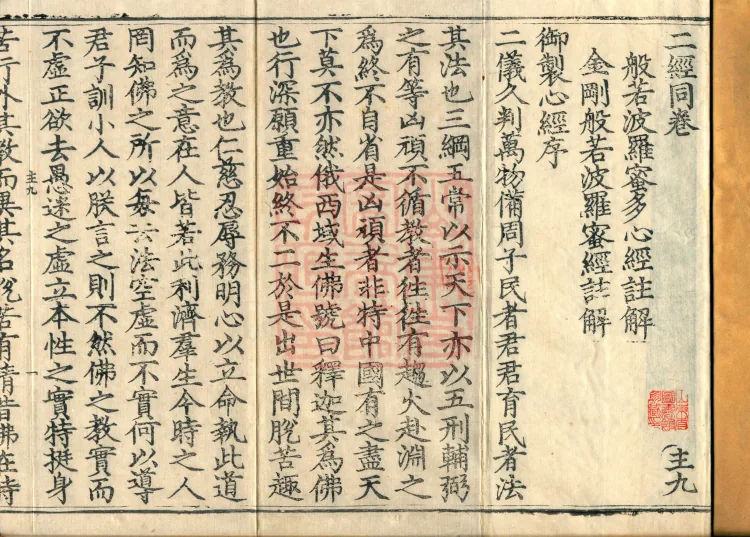 二經同卷 主九
般若波羅蜜多心經註解
金剛般若波羅蜜經註解
御製心經序
二儀久判萬物備周子民者君君育民者法
其法也三綱五常以示天下亦以五刑輔弼
之有等凶頑不循教者往往有趨火赴淵之
爲終不自省是凶頑者非特中國有之盡天
下莫不亦然俄西域生佛號曰釋迦其爲佛
也行深願重始終不二於是出世間脫苦趣
其爲教也仁慈忍辱務明心以立命執此道
而爲之意在人皆若此利濟羣生今時之人
罔知佛之所以每云法空虛而不實何以導
君子訓小人以朕言之則不然佛之教實而
不虛正欲去愚迷之虛立本性之實特挺身
主九 一
苦行外其教而異其名脫苦有情昔佛在時